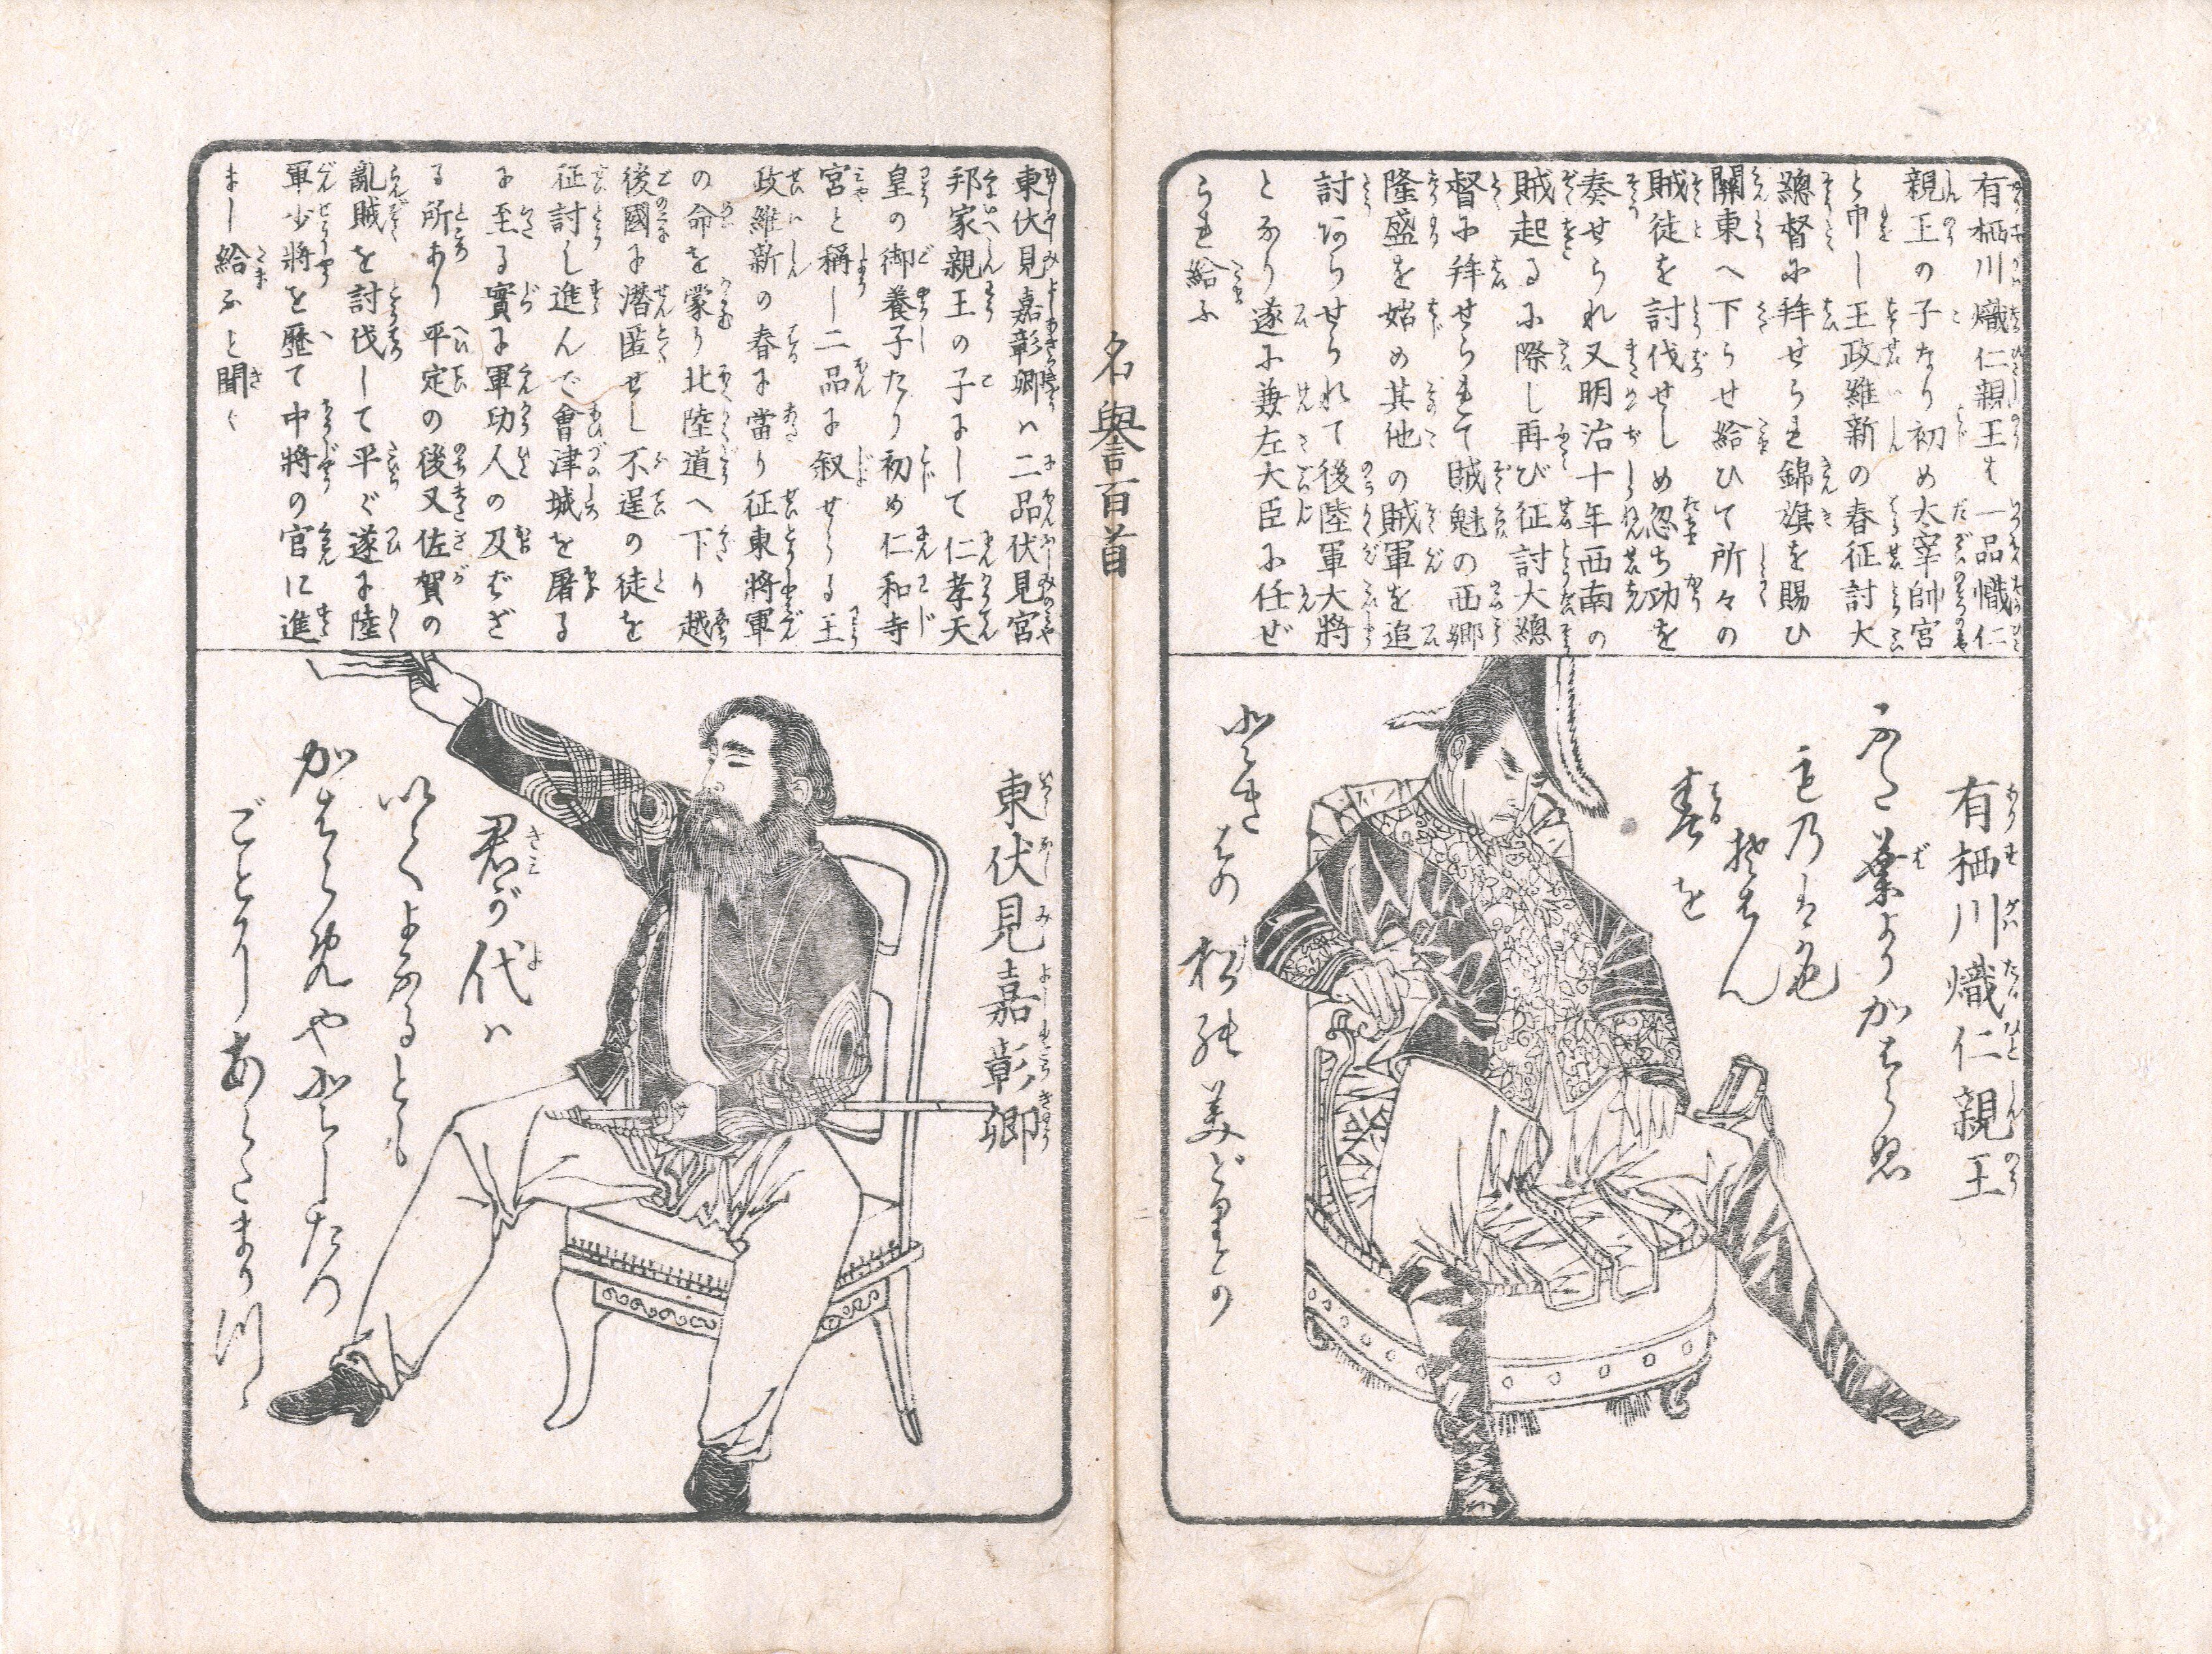 有栖川熾仁親王は一品幟仁
親王の子なり初め太宰帥宮
と申し王政維新の春征討大
總督に拜せられ錦旗を賜ひ
關東へ下らせ給ひて所々の
賊徒を討伐せしめ忽ち功を
奏せられ又明治十年西南の
賊起るに際し再び征討大總
督に拜せられて賊魁の西郷
隆盛を始め其他の賊軍を追
討あらせられて後陸軍大將
となり遂に兼左大臣に任ぜ
られ給ふ
有栖川熾仁親王
ふた葉よりかはらぬ
春を
ときはの松のみどりの
名譽百首
東伏見嘉彰卿ハ二品伏見宮
邦家親王の子にして仁孝天
皇の御養子たり初め仁和寺
宮と稱し二品に叙せらる王
政維新の春に當り征東將軍
の命を蒙り北陸道へ下り越
後國に潜匿せし不逞の徒を
征討し進んで會津城を屠る
に至る實に軍功人の及ばざ
る所あり平定の後又佐賀の
亂賊を討伐して平ぐ遂に陸
軍少將を歴て中將の官に進
まし給ふと聞く
東伏見嘉彰卿
君が代ハ
いくよふるとも
かはらぬや